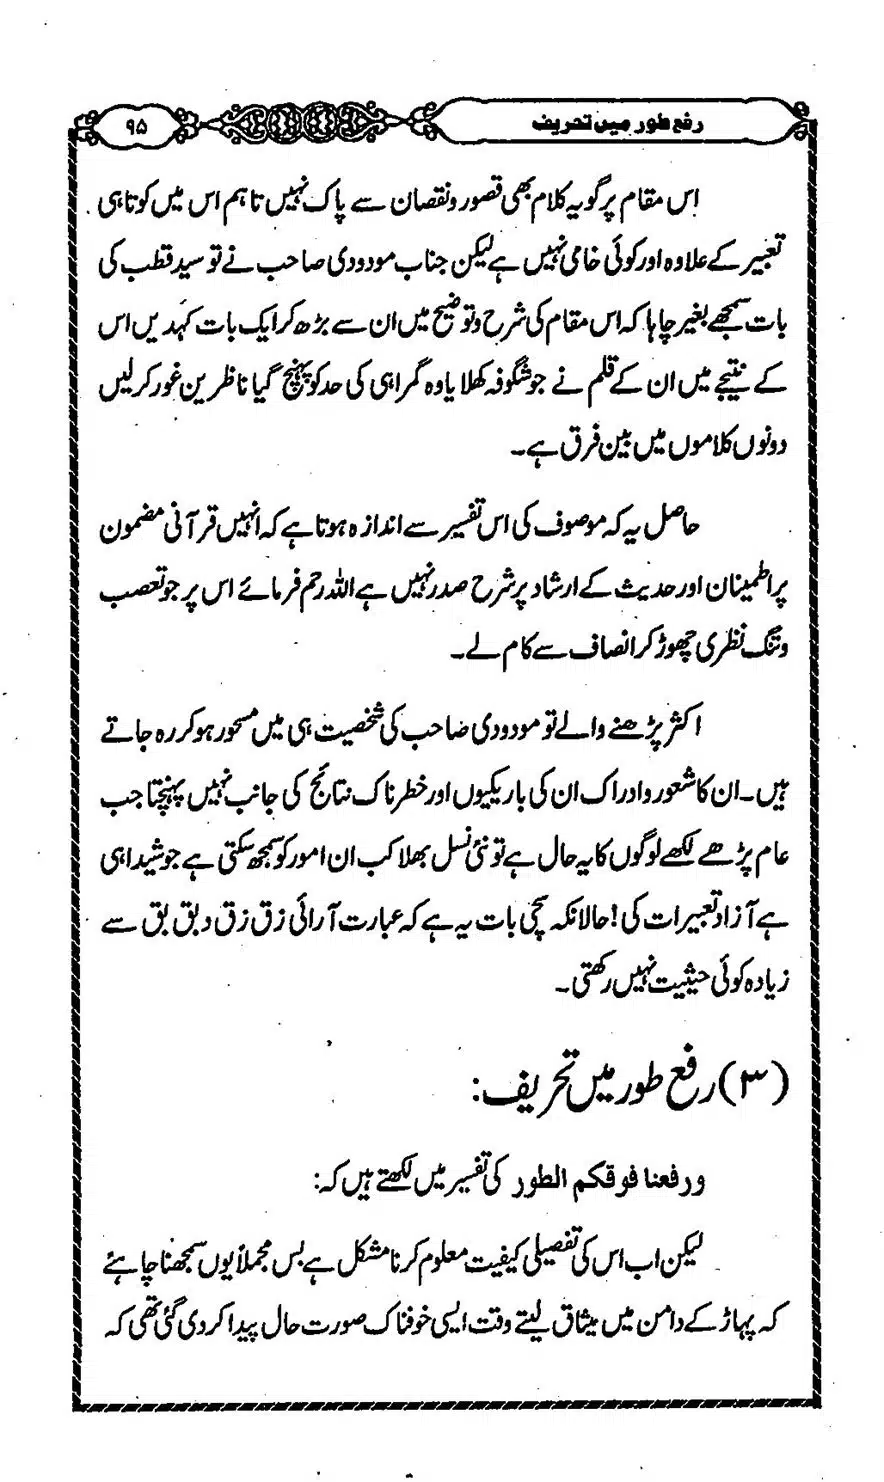 رفع طور میں تحریف
۹۵
اس مقام پر گو یہ کلام بھی قصور و نقصان سے پاک نہیں تاہم اس میں کوتاہی
تعبیر کے علاوہ اور کوئی خامی نہیں ہے لیکن جناب مودودی صاحب نے تو سید قطب کی
بات سمجھے بغیر چاہا کہ اس مقام کی شرح و توضیح میں ان سے بڑھ کر ایک بات کہدیں اس
کے نتیجے میں ان کے قلم نے جو شگوفہ کھلایا وہ گمراہی کی حد کو پہنچ گیا ناظرین غور کرلیں
دونوں کلاموں میں بین فرق ہے۔
حاصل یہ کہ موصوف کی اس تفسیر سے اندازہ ہوتا ہے کہ انہیں قرآنی مضمون
پر اطمینان اور حدیث کے ارشاد پر شرح صدر نہیں ہے اللہ رحم فرمائے اس پر جو تعصب
و تنگ نظری چھوڑ کر انصاف سے کام لے۔
اکثر پڑھنے والے تو مودودی صاحب کی شخصیت ہی میں مسحور ہو کر رہ جاتے
ہیں۔ ان کا شعور و ادراک ان کی باریکیوں اور خطرناک نتائج کی جانب نہیں پہنچتا جب
عام پڑھے لکھے لوگوں کا یہ حال ہے تو نئی نسل بھلا کب ان امور کو سمجھ سکتی ہے جو شیدا ہی
ہے آزاد تعبیرات کی! حالانکہ سچی بات یہ ہے کہ عبارت آرائی زق زق و بق بق سے
زیادہ کوئی حیثیت نہیں رکھتی۔
(۳) رفع طور میں تحریف:
ورفعنا فوقکم الطور کی تفسیر میں لکھتے ہیں کہ:
لیکن اب اس کی تفصیلی کیفیت معلوم کرنا مشکل ہے بس مجملاً یوں سمجھنا چاہئے
کہ پہاڑ کے دامن میں میثاق لیتے وقت ایسی خوفناک صورت حال پیدا کر دی گئی تھی کہ